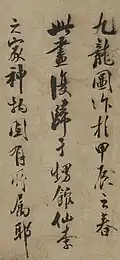 九龍圖作於甲辰之春
此畫復歸于甥館仙李
之家神物固有所屬耶